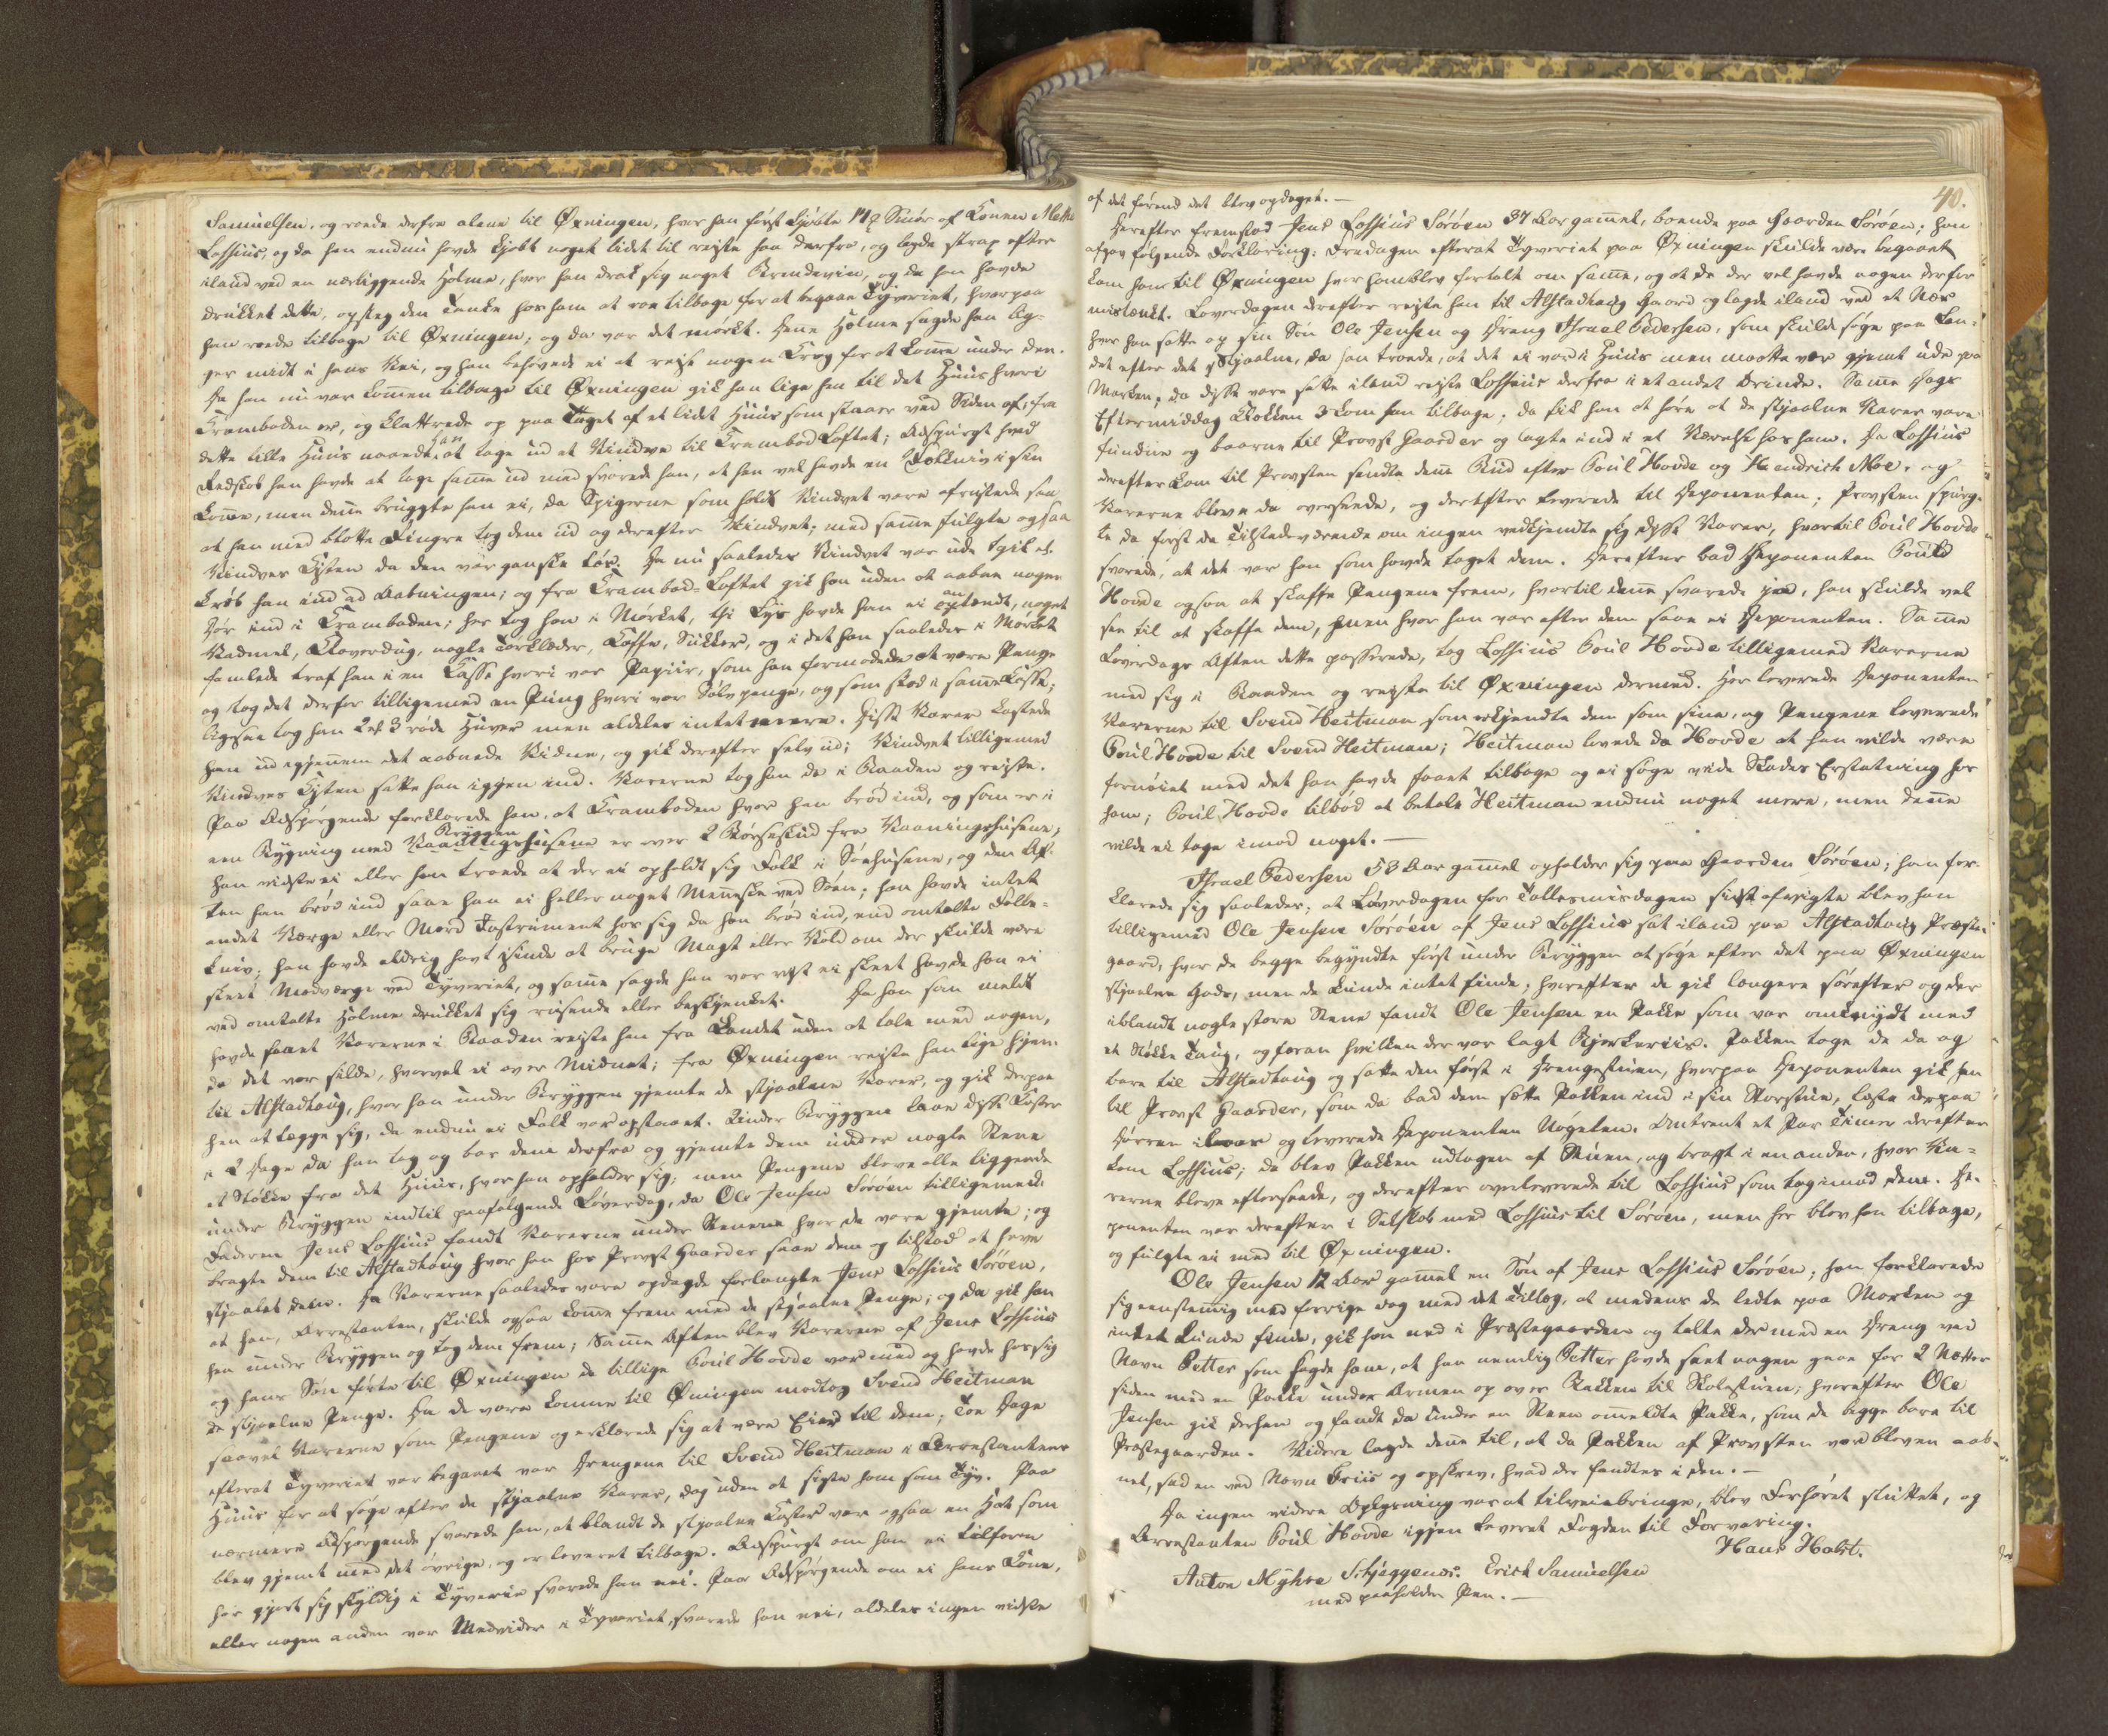 Samuelsen, og roede derfra alene til Øxningen, hvor han først kjøbte 1 ℔ Smør af Konen Mette
Lossius, og da han endnu havde kjøbt noget lidet til reiste han derfra, og lagde strax efter
iland ved en nærliggende Holme, hvor han drak sig noget Brændeviin, og da han havde
drukket dette, opsteg den Tanke hos ham at roe tilbage for at begaae Tyveriet, hvorpaa
han roede tilbage til Øxningen; og da var det mørkt. Denne Holme sagde han lig-
ger midt i hans Vei, og han behøvede ei at reise nogen Krog for at komme under den.
Da han nu var kommen tilbage til Øxningen gik han lige hen til det Huus hvori
Kramboden er, og klattrede op paa Taget af et lidet Huus som staaer ved Siden af; fra
dette lille Huus naaede han at tage ud et Vindve til Krambod Loftet; Adspurgt hvad
Redskab han havde at tage samme ud med svarede han, at han vel havde en Follekniv i sin
Lomme, men denne bruggte han ei, da Spigerne som holdt Vindvet vare afrustede saa
at han med blotte Fingre tog dem ud og derefter Vindvet; med samme fulgte ogsaa
Vindves Listen da den var ganske løs. Da nu saaledes Vindvet var ude
krøb han ind ad Aabningen; og fra Krambod-Loftet gik han uden at aabne nogen
Dør ind i Kramboden; her tog han i Mørket, thi Lys havde han ei antændt, noget
Vadmel, Kloverdug, nogle Tørklæder, Kaffe, Sukker, og i det han saaledes i Mørket
famlede traf han i en Kasse hvori var Papiir, som han formodede at være Penge
og tog det derfor tilligemed en Pung hvori var Sølvpenge, og som stod i samme Kasse;
Ogsaa tog han 2 a 3 røde Huver men aldeles intet meere. Disse Varer kastede
han ud igjennem det aabnede Vidue, og gik derefter selv ud; Vindvet tilligemed
Vindves Listen satte han iggen ind. Varerne tog han da i Baaden og reiste.
Paa Adspørgende forklarede han, at Kramboden hvor han brød ind, og som er i
een Bygning med Bryggen er over 2 Børseskud fra Vaaningshusene,
han vidste ei eller han troede at der ei opholdt sig Folk i Søehusene, og den Af-
ten han brød ind saae han ei heller noget Menneske ved Søen; han havde intet
andet Værge eller Mord Instrument hos sig da han brød ind, end omtalte Folle-
kniv; han havde aldrig havt isinde at bruge Magt eller Vold om der skulde være
skeet Modværge ved Tyveriet, og samme sagde han var rist ei skeet havde han ei
ved omtalte Holme drukket sig rusende eller beskjænket. Da han som meldt
havde faaet Varerne i Baaden reiste han fra Landet uden at tale med nogen,
da det var silde, hvorvel ei over Midnat; fra Øxningen reiste han lige hjem
til Alstadhoug, hvor han under Bryggen gjemte de stjaalne Varer, og gik derpaa
hen at lægge sig, da endnu ei Folk var opstaaet. Under Bryggen laae disse Koster
i 2 Dage da han tog og bar dem derfra og gjemte dem under nogle Stene
et Støkke fra det Huus, hvor han opholder sig; men Pengene bleve alle liggende
under Bryggen indtil paafølgende Løverdag, da Ole Jensen Sørøen tilligemed
Faderen Jens Lossius fandt Varerne under Stenene hvor de vare gjemte; og
bragte dem til Alstadhoug hvor han hos Provst Gaarder saae dem og tilstod at have
stjaalet dem. Da Varerne saaledes vare opdagede forlangte Jens Lossius Sørøen,
at han, Arrestanten, skulde ogsaa komme frem med de stjaalne Penge; og da gik han
hen under Bryggen og tog dem frem; Samme Aften blev Varerne af Jens Lossius
og hans Søn førte til Øxningen da tillige Poul Hovde var med og havde hos sig
de stjaalne Penge. Da de vare komne til Øxningen modtog Svend Heitman
saavel Varerne som Pengene og erklærede sig at være Eier til dem; Toe Dage
efterat Tyveriet var begaaet var Drengene til Svend Heitman i Arrestantens
Huus for at søge efter de stjaalne Varer, dog uden at sigte ham som Tyv. Paa
nærmere Adspørgende svarede han, at blandt de stjaalne Koster var ogsaa en Hat som
blev gjemt med det øvrige, og er leveret tilbage. Adspurgt om han ei tilforn
har gjort sig skyldig i Tyverie svarede han nei. Paa Adspørgende om ei hans Kone,
eller nogen anden var Medvider i Tyveriet, svarede han nei, aldeles ingen vidste
40.
af det førend det blev opdaget.—
Derefter fremstod Jens Lossius Sørøen 37 Aar gammel, boende paa Gaarden Sørøen; han
afgav følgende Forklaring: Fredagen efterat Tyveriet paa Øxningen skulde være begaaet
kom han til Øxningen hvor ham blev fortalt om samme, og at de der vel havde nogen derfor
mistænkt. Løverdagen derefter reiste han til Alstadhoug Gaard og lagde iland ved et Næs
hvor han satte op sin Søn Ole Jensen og Dreng Israel Pedersen, som skulde søge paa Lan-
det efter det Stjaalne, da han troede, at det ei var i Huus men maatte vær gjemt ude paa
Marken; da disse vare satte iland reiste Lossius derfra i et andet Ærinde. Samme Dags
Eftermiddag Klokken 3 kom han tilbage; da fik han at høre at de stjaalne Varer vare
fundne og baarne til Provst Gaarder og lagte ind i et Værelse hos ham. Da Lossius
derefter kom til Provsten sendte denne Bud efter Poul Hovde og Hendrich Moe, og
Varerne bleve da overseede, og derefter leverede til Deponenten; Provsten spurg-
te da først de Tilstedeværende om ingen vedkjendte sig disse Varer, hvortil Poul Hovde
svarede, at det var han som havde taget dem. Derefter bad Deponenten Poul
Hovde ogsaa at skaffe Pengene frem, hvortil denne svarede ja, han skulde vel
see til at skaffe dem, men hvor han var efter dem saae ei Deponenten. Samme
Løverdags Aften dette passerede, tog Lossius Poul Hovde tilligemed Varerne
med sig i Baaden og reiste til Øxningen dermed. Her leverede Deponenten
Varerne til Svend Heitman som erkjendte dem som sine, og Pengene leverede
Poul Hovde til Svend Heitman; Heitman lovede da Hovde at han vilde være
fornøiet med det han havde faaet tilbage og ei søge vide Skades Erstatning hos
ham; Poul Hovde tilbød at betale Heitman endnu noget mere, men denne
vilde ei tage imod noget.—
Israel Pedersen 53 Aar gammel opholder sig paa Gaarden Sørøen; han for-
klarede sig saaledes; at Løverdagen for Tollesmisdagen sidst afvigte blev han
tilligemed Ole Jensen Sørøen af Jens Lossius sat iland paa Alstadhoug Præste-
gaard, hvor de begge begyndte først under Bryggen at søge efter det paa Øxningen
stjaalne Gods, men de kunde intet finde; hvorefter de gik længere sørefter og der
iblandt nogle store Stene fandt Ole Jensen en Pakke som var omknydt med
et Støkke Taug, og foran hvilken der var lagt Bjerkeriis. Pakken toge de da og
bare til Alstadhoug og satte den først i Drengestuen, hvorpaa Deponenten gik hen
til Provst Gaarder, som da bad dem sætte Pakken ind i sin Storstue, laste derpaa
Dørren ilaas og leverede Deponenten Nøgelen. Omtrent et Par Timer derefter
kom Lossius; da blev Pakken udtagen af Stuen, og bragt i en anden, hvor Va-
rerne bleve efterseede, og derefter overleverede til Lossius som tog imod dem. De-
ponenten var derefter i Selskab med Lossius til Sørøen, men her blev han tilbage,
og fulgte ei med til Øxningen.
Ole Jensen 12 Aar gammel en Søn af Jens Lossius Sørøen; han forklarede
sig eenstemmig med forrige dog med det Tillæg, at medens de ledte paa Marken og
intet kunde finde, gik han ned i Præstegaarden og talte der med en Dreng ved
Navn Petter som sagde ham, at han nemlig Petter havde seet nogen gaae for 2 Nætter
siden med en Pakke under Armen op over Bakken til Skolestuen; hvorefter Ole
Jensen gik derhen og fandt da under en Steen ommeldte Pakke, som de begge bare til
Præstegaarden. Videre lagde denne til, at da Pakken af Provsten var bleven aab-
net, sad en ved Navn Friis og opskrev, hvad der fandtes i den.—
Da ingen videre Oplysning var at tilveiebringe, blev Forhøret sluttet, og
Arrestanten Poul Hovde igjen leveret Fogden til Forvaring.
Hans Holst.
Anton Myhre Schjeggenes. Erich Samuelsen
med paaholden Pen.—